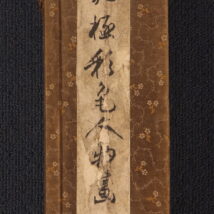 極彩色人物畫